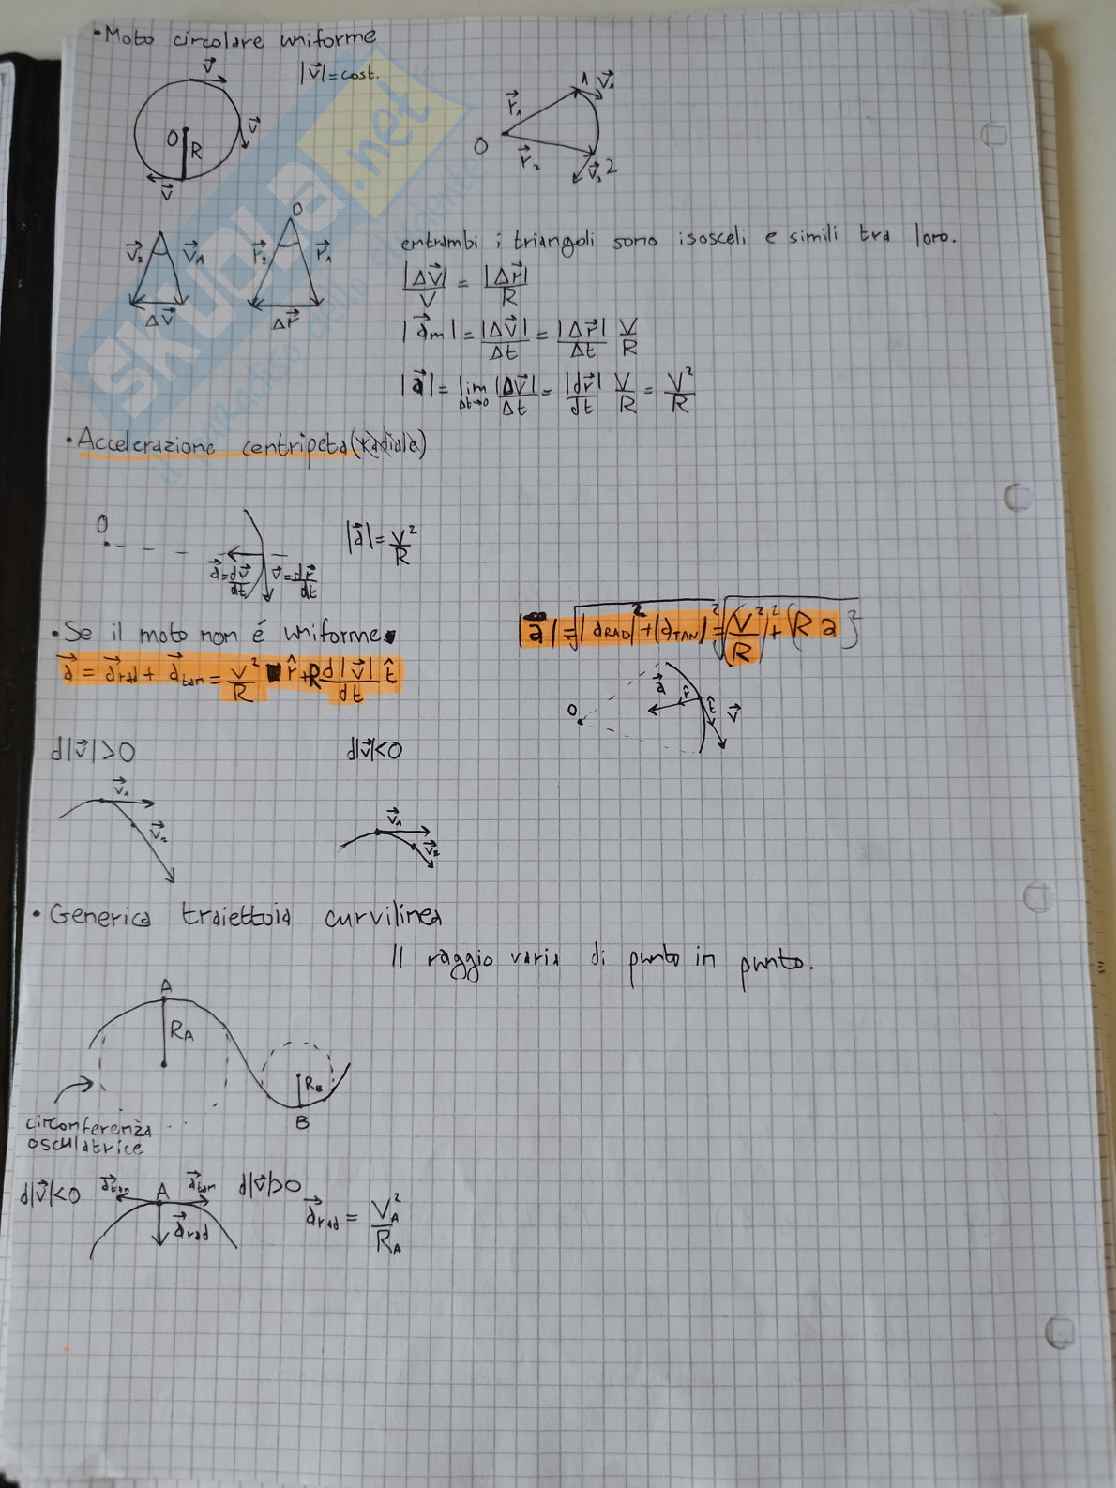 • Moto circolare uniforme
|v⃗|=cost.
v⃗
v⃗
O
R
v⃗
r⃗₁
1
v⃗₁
O
r⃗₂
v⃗₂
2
v⃗₂
v⃗₁
Δv⃗
O
r⃗₂
r⃗₁
Δr⃗
entrambi i triangoli sono isosceli e simili tra loro.
|Δv⃗|/V = |Δr⃗|/R
|a⃗m| = |Δv⃗|/Δt = |Δr⃗|/Δt V/R
|a⃗| = lim Δt→0 |Δv⃗|/Δt = |dr⃗|/dt V/R = V²/R
• Accelerazione centripeta (radiale)
O
a⃗=dv⃗/dt
v⃗=dr⃗/dt
|a⃗|=V²/R
• Se il moto non é uniforme
a⃗ = a⃗rad + a⃗tan = V²/R r̂ + R d|v⃗|/dt t̂
|a⃗| = √|aRAD|²+|aTAN|² = √(V²/R)²+(R a)²
O
a⃗
r̂
t̂
v⃗
d|v⃗|>0
d|v⃗|<0
v⃗₁
v⃗₂
v⃗₁
v⃗₂
• Generica traiettoia curvilinea
Il raggio varia di punto in punto.
A
RA
RB
B
circonferenza
osculatrice
d|v⃗|<0
a⃗tan
A
a⃗tan
d|v⃗|>0
a⃗rad
a⃗rad = VA²/RA
skuola.net